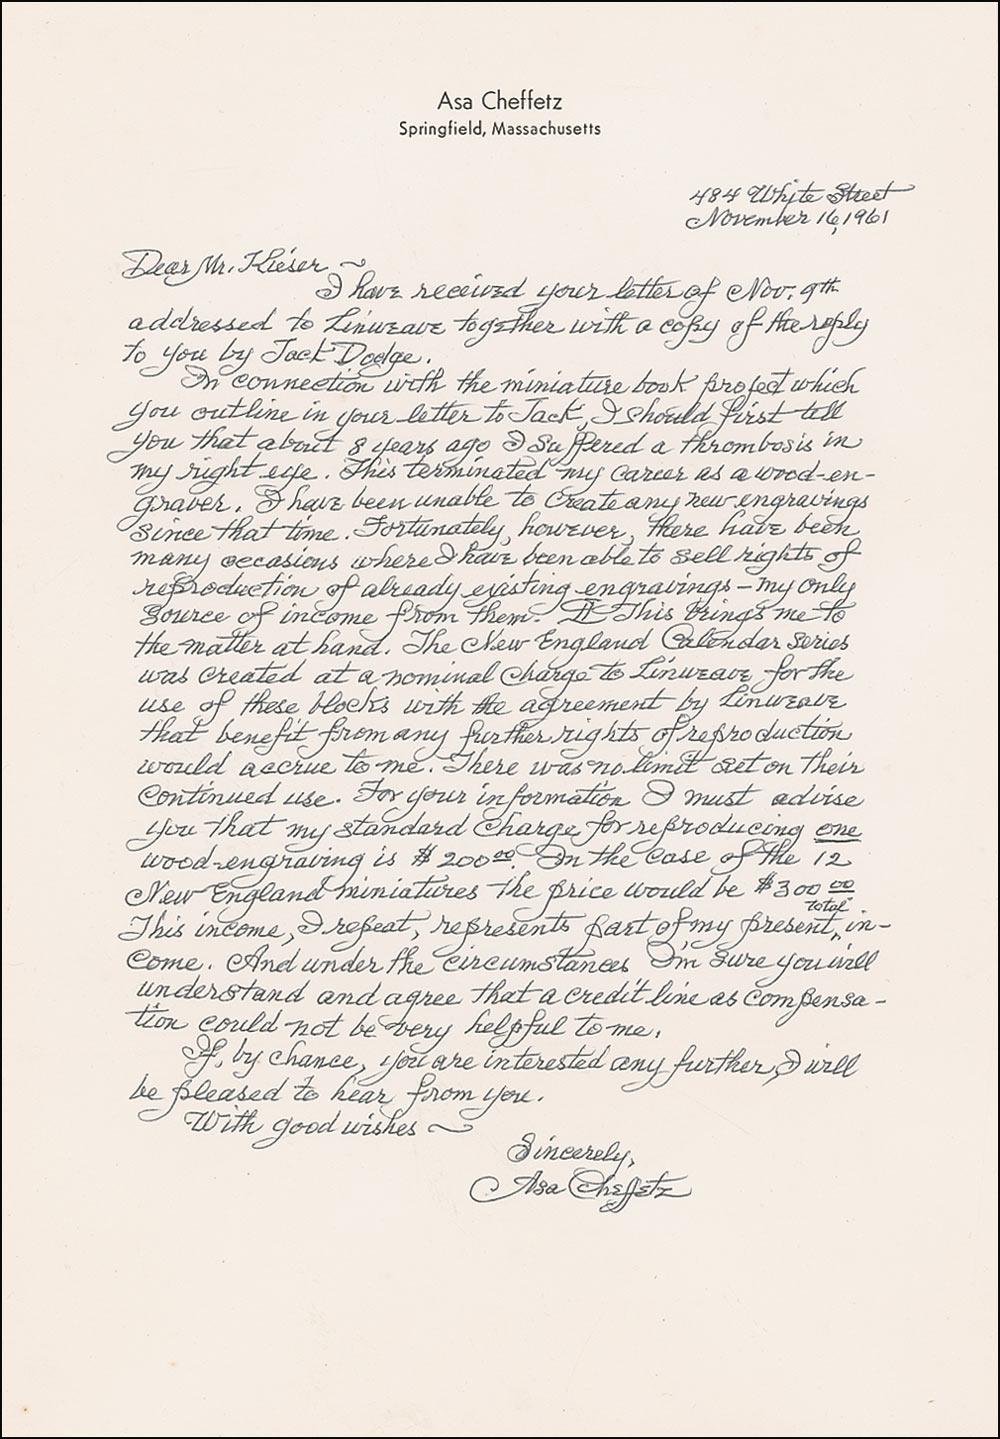 Asa Cheffetz
Springfield, Massachusetts
484 White Street
November 16, 1961
Dear Mr. Kieser ~
I have received your letter of Nov. 9th
addressed to Linweave together with a copy of the reply
to you by Jack Dodge.
In connection with the miniature book project which
you outline in your letter to Jack, I should first tell
you that about 8 years ago I suffered a thrombosis in
my right eye. This terminated my career as a wood-en-
graver. I have been unable to create any new engravings
since that time. Fortunately, however, there have been
many occasions where I have been able to sell rights of
reproduction of already existing engravings – my only
source of income from them. ¶ This brings me to
the matter at hand. The New England Calendar series
was created at a nominal charge to Linweave for the
use of these blocks with the agreement by Linweave
that benefit from any further rights of reproduction
would accrue to me. There was no limit set on their
continued use. For your information I must advise
you that my standard charge for reproducing one
wood-engraving is $200.00. In the case of the 12
New England miniatures the price would be $300 00
total
This income, I repeat, represents part of my present, in-
come. And under the circumstances I'm sure you will
understand and agree that a credit line as compensa-
tion could not be very helpful to me.
If, by chance, you are interested any further, I will
be pleased to hear from you.
With good wishes ~
Sincerely,
Asa Cheffetz